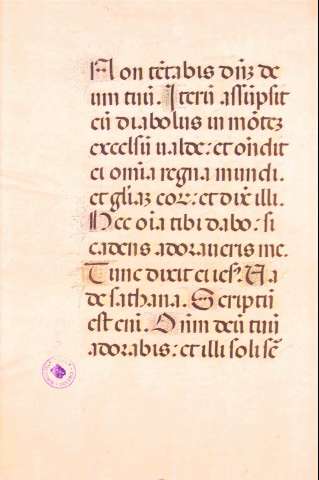 Non tētabis dn̄z de
um tuū. Iterū assūpsit
eū diabolus in mōtez
excelsū ualde: et oñdit
ei om̄ia regna mundi.
et gl̄iaz eor: et dix̄ illi.
Hec oīa tibi dabo: si
cadens adoraueris me.
Tunc dixit ei iesꝰ. Ua
de sathana. Scriptū
est eni. Dn̄m deū tuū
adorabis: et illi soli sē